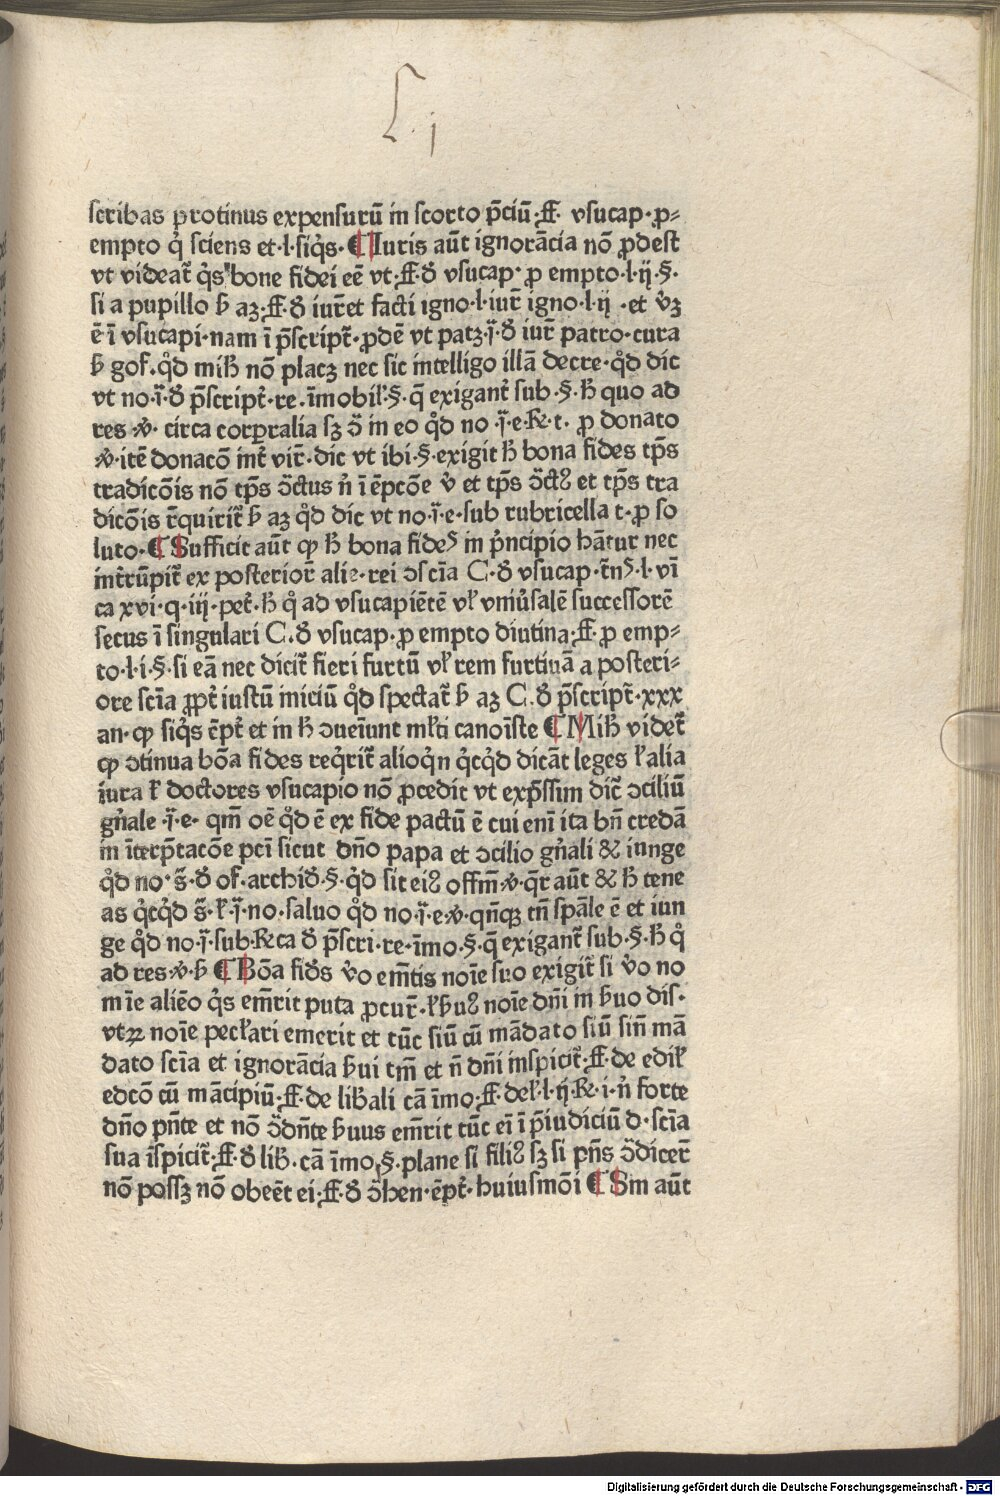 L. j
scribas protinus expensurū in scorto p̄ciū·ff· vsucap·p⸗
empto q̇ sciens et·l·siq̇s· ¶ Iuris aūt ignorācia nō ꝓdest
vt videat̄ q̇s bone fidei eē vt·ff·ꝺ̄ vsucap· ꝓ empto·l·ij·§·
si a pupillo ƀ aꝫ·ff·ꝺ̄ iur̄ et facti igno·l·iur̄ igno·l·ij ·et v̇ꝫ
ē ī vsucapi·nam ī p̄script̄·ꝓdē vt patꝫ·ī·ꝺ̄ iur̄ patro·cura
ƀ gof.qͦd miħ nō placꝫ nec sic intelligo illā decre·qͦd dic
vt no·ī·ꝺ̄ p̄script̄·re.īmobil̄·§·q̄ exigant̄ sub·§·ħ quo ad
res ꝟ· circa corꝑalia sꝫ ɔ̄ in eo qͦd no ·ī·e·R̄·t· ꝓ donato
ꝟ·itē donacō int̄ vir̄·dic vt ibi·§·exigit ħ bona fides tp̄s
tradicōis nō tp̄s ɔ̄ctus n̄ ī ēpcōe v̇ et tp̄s ɔ̄ct⁹ et tp̄s tra
dicōis r̄quirit̄ ƀ aꝫ qͦd dic vt no·ī·e·sub rubricella t·ꝓ so
luto· ¶ Sufficit aūt ꝙ ħ bona fides in p̄ncipio hātur nec
int̄rūpit̄ ex posterior̄ alie·rei ɔscīa C·ꝺ̄ vsucap·t̄nˢ·l·vī
ca xvi·q·iij·pet̄·ħ q̇ ad vsucapiētē vl̄ vniu̇salē successorē
secus ī singulari C.ꝺ̄ vsucap·ꝓ empto diutina·ff·ꝓ emp⸗
to·l·i·§·si eā nec dicit̄ fieri furtū vl̄ rem furtiuā a posteri⸗
ore scīa ꝓpt̄ iustū iniciū qͦd spectat̄ ƀ aꝫ C.ꝺ̄ p̄script̄·xxx
an·ꝙ siq̇s ēpt̄ et in ħ ɔueīunt ml̄ti canoīste ¶ Miħ videt̄
ꝙ ɔtinua bōa fides req̇rit̄ alioq̇n q̇cq̇d dicāt leges l̄ alia
iura l̄ doctores vsucapio nō ꝓcedit vt exp̄ssim dic̄ ɔciliū
gn̄ale ·ī·e· qm̄ oē qͦd ē ex fide pactū ē cui enī ita bn̄ credā
in īterp̄tacōe pcī sicut dn̄o papa et ɔcilio gn̄ali & iunge
qͦd no·s̄·ꝺ̄ of.archiꝺ̄·§·qͦd sit ei⁹ offm̄·ꝟ·q̄r aūt & ħ tene
as q̇cq̇d s̄·l̄·ī·no·saluo qͦd no·ī·e·ꝟ·qn̄cꝫ tn̄ sp̄ale ē et iun
ge qͦd no·ī·sub·R̄ca ꝺ̄ p̄scri·re·īmo·§·q̄ exigant̄ sub·§·ħ q̇
ad res·ꝟ·ƀ ¶ Bōa fid̄s v̇o em̄tis noīe suo exigit̄ si v̇o no
mīe aliēo q̇s em̄rit puta ꝓcur̄·l̄ ƀu⁹ noīe dn̄i in ƀuo dis·
vtꝝ noīe pecl̄ari emerit et tūc siū cū mādato siū sin̄ mā
dato scīa et ignorācia ƀui tm̄ et n̄ dn̄i inspicit̄·ff·de edil̄
edcō cū mācipiū·ff·de liƀali cā īmo·ff·del̄·l·ij·R̄·i·n̄ forte
dn̄o pn̄te et nō ɔ̄dn̄te ƀuus em̄rit tūc eī ī p̄iudiciū d·scīa
sua īspicit̄·ff·ꝺ̄ liƀ·cā īmo·§·plane si fili⁹ sꝫ si pn̄s ɔ̄dicer̄
nō possꝫ nō obeēt ei·ff·ꝺ̄ ɔ̄hen·ēpt̄·huiusmōi ¶ Sm aūt
Digitalisierung gefördert durch die Deutsche Forschungsgemeinschaft - DFG